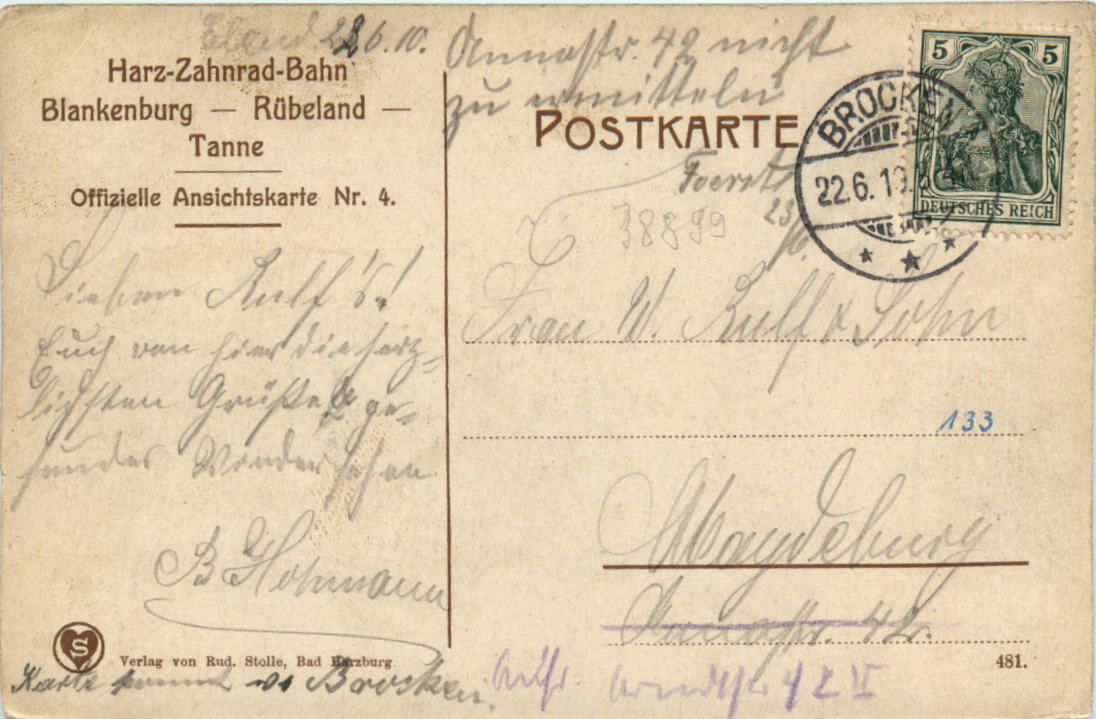 Elend 22.6.10.
Harz-Zahnrad-Bahn
Blankenburg — Rübeland —
Tanne
Offizielle Ansichtskarte Nr. 4.
Lieben Rulf's!
Euch von hier die herz-
lichsten Grüße &amp; ge-
sundes Wiedersehen
B Hohmann
S
Verlag von Rud. Stolle, Bad Harzburg
Karte kommt v. Brocken.
Annastr. 42 nicht
zu ermitteln
POSTKARTE
23/6.
38899
5 5
DEUTSCHES REICH
BROCKEN
22.6.10.
Frau W. Rulf & Sohn
133
Magdeburg
Annastr. 42.
481.
42 II